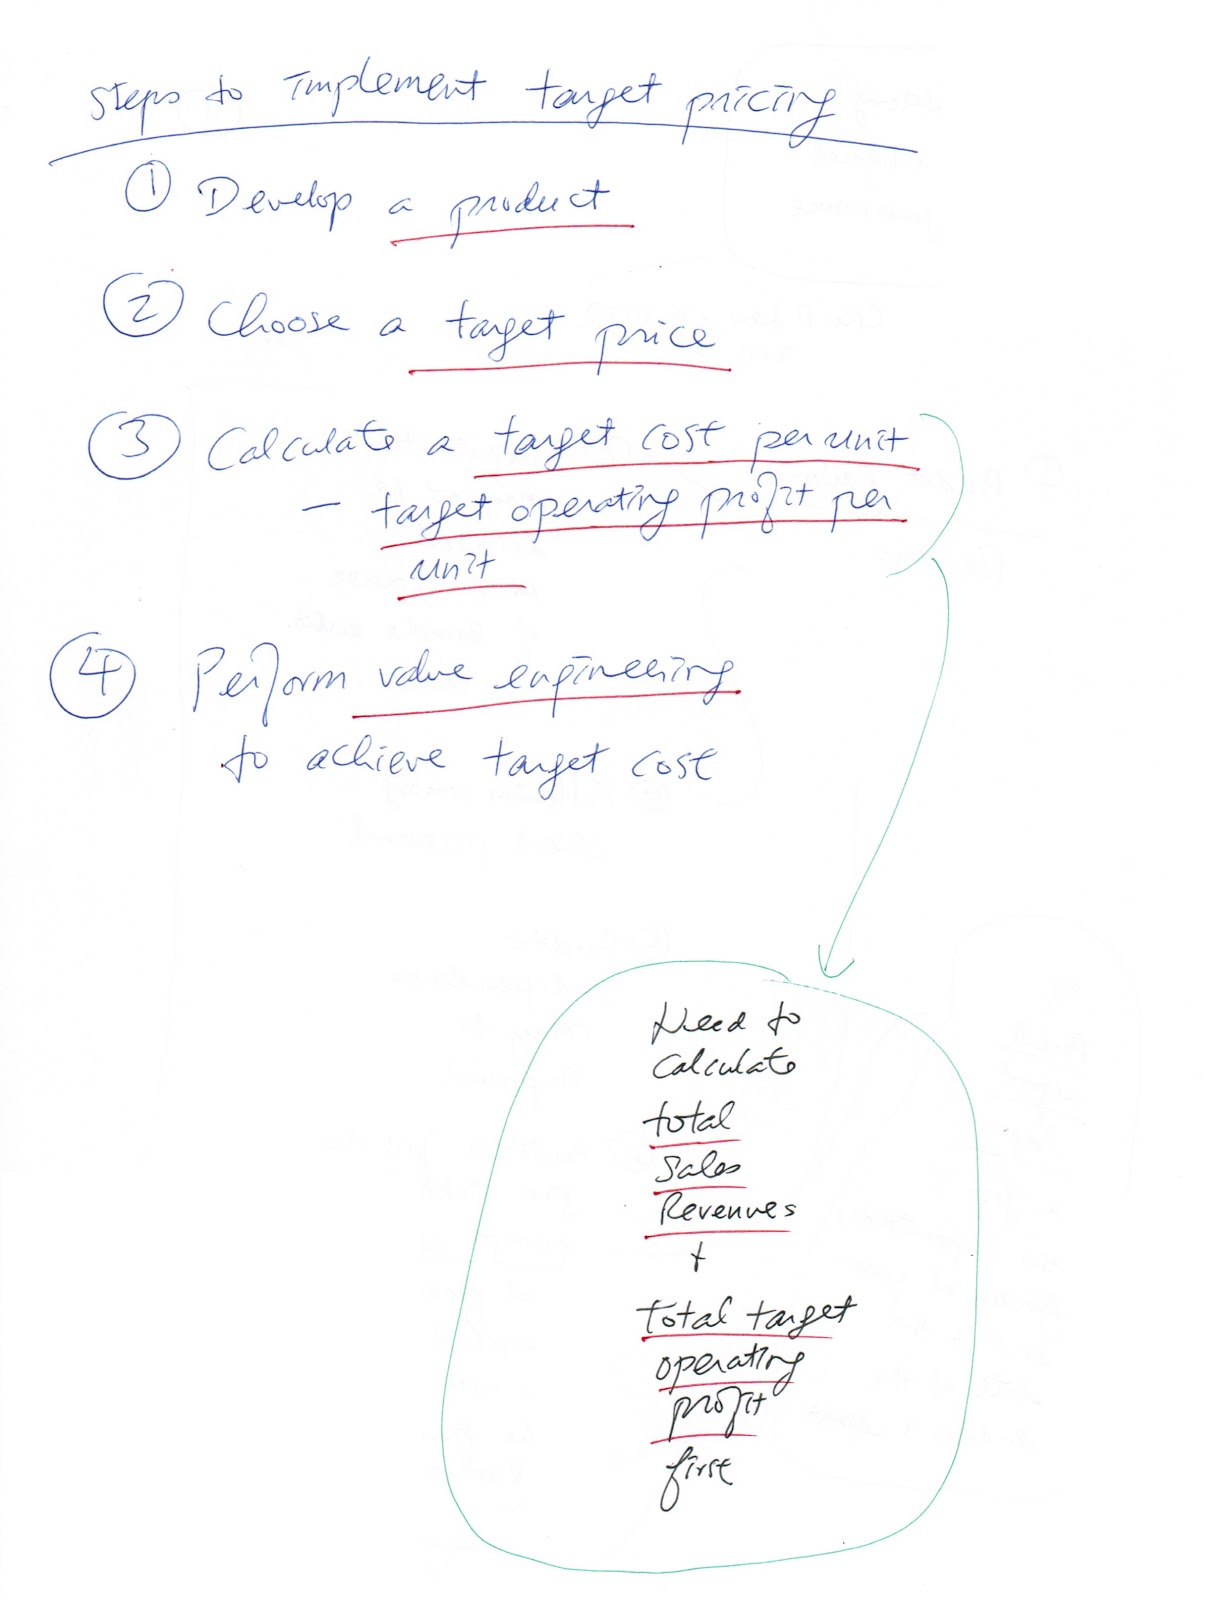 Steps to implement target pricing
① Develop a product
② Choose a target price
③ Calculate a target cost per unit
– target operating profit per
unit
④ Perform value engineering
to achieve target cost
Need to
Calculate
total
Sales
Revenues
+
total target
operating
profit
first